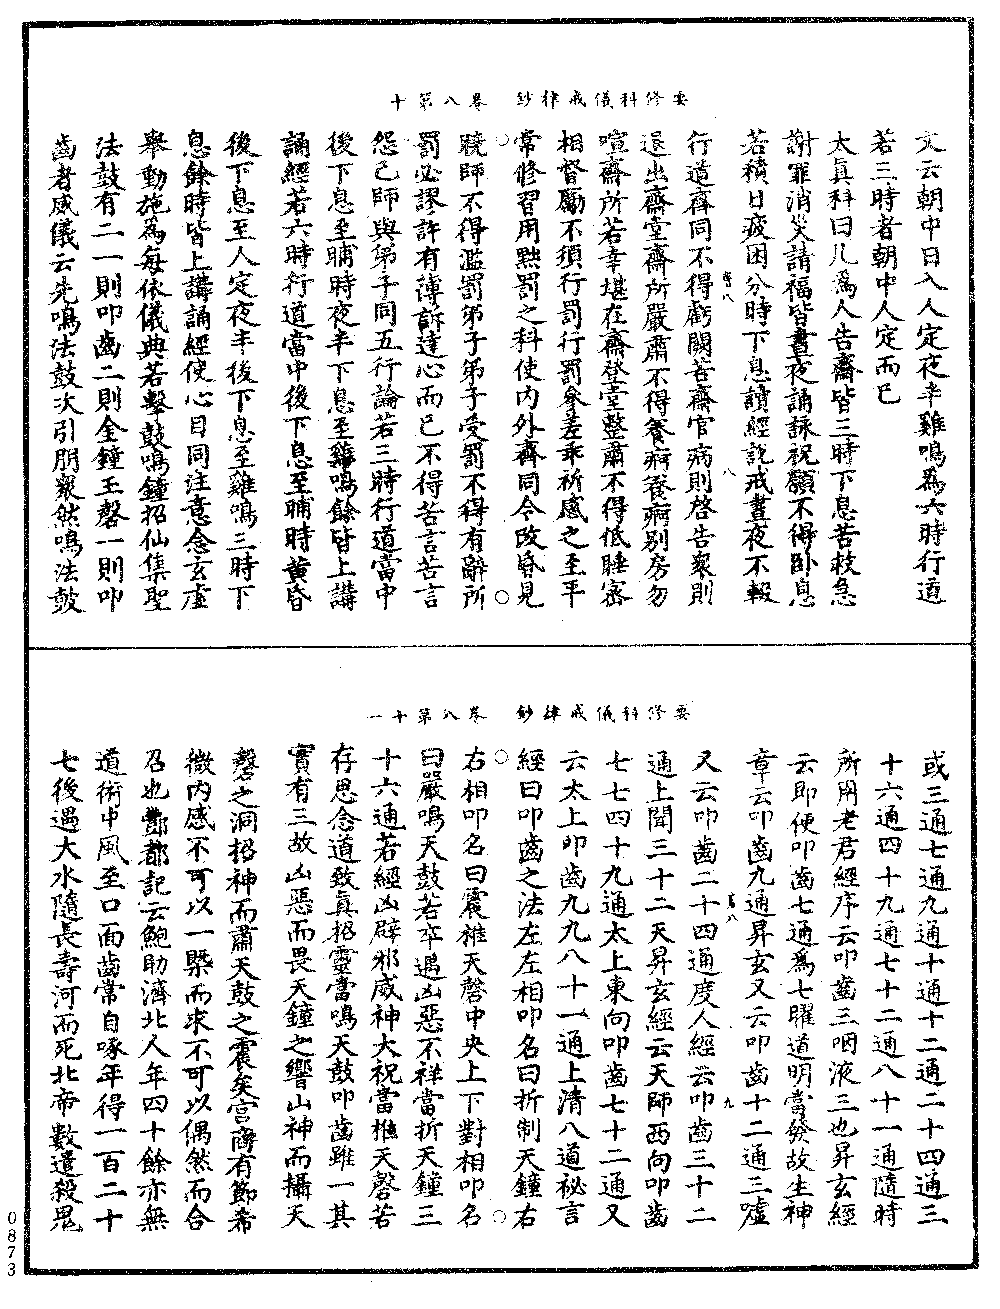 要修科儀戒律鈔　卷八第十
文云朝中日入人定夜半雞鳴爲六時行道
若三時者朝中人定而已
太真科曰凡爲人告齋皆三時下息若救急
謝罪消災請福皆晝夜誦詠祝願不得卧息
若積日疲困分時下息讀經說戒晝夜不輟
行道齊同不得虧闕若齋官病則啓告衆則
退出齋堂齋所嚴肅不得養病養病別房勿
喧齋所若幸堪在齋登堂整肅不得低睡審
相督勵不須行罰行罰參差乖祈感之至平
常修習用點罰之科使內外齊同令改昏見
曉師不得濫罰弟子弟子受罰不得有辭所
罰必謬許有薄訴達心而已不得苦言苦言
怨已師與弟子同五行論若三時行道當中
後下息至晡時夜半下息至雞鳴餘皆上講
誦經若六時行道當中後下息至晡時黃昏
後下息至人定夜半後下息至雞鳴三時下
息餘時皆上講誦經使心目同注意念玄虛
舉動施爲每依儀典若擊鼓鳴鐘招仙集聖
法鼓有二一則叩齒二則金鐘玉磬一則叩
齒者威儀云先鳴法鼓次引朋衆然鳴法鼓
要修科儀戒律鈔　卷八第十一
或三通七通九通十通十二通二十四通三
十六通四十九通七十二通八十一通隨時
所用老君經序云叩齒三咽液三也昇玄經
云即便叩齒七通爲七曜道明當發故生神
章云叩齒九通昇玄又云叩齒十二通三噓
又云叩齒二十四通度人經云叩齒三十二
通上聞三十二天昇玄經云天師西向叩齒
七七四十九通太上東向叩齒七十二通又
云太上叩齒九九八十一通上清八道祕言
經曰叩齒之法左左相叩名曰折制天鐘右
右相叩名曰震椎天磬中央上下對相叩名
曰嚴鳴天鼓若卒遇凶惡不祥當折天鐘三
十六通若經凶辟邪威神大祝當椎天磬若
存思念道致真招靈當鳴天鼓叩齒雖一其
實有三故凶惡而畏天鐘之響山神而攝天
磬之洞招神而肅天鼓之震矣宮商有節希
微內感不可以一槩而求不可以偶然而合
召也酆都記云鮑助濟北人年四十餘亦無
道術中風至口面齒常自啄年得一百二十
七後遇大水隨長壽河而死北帝數遣殺鬼
0873